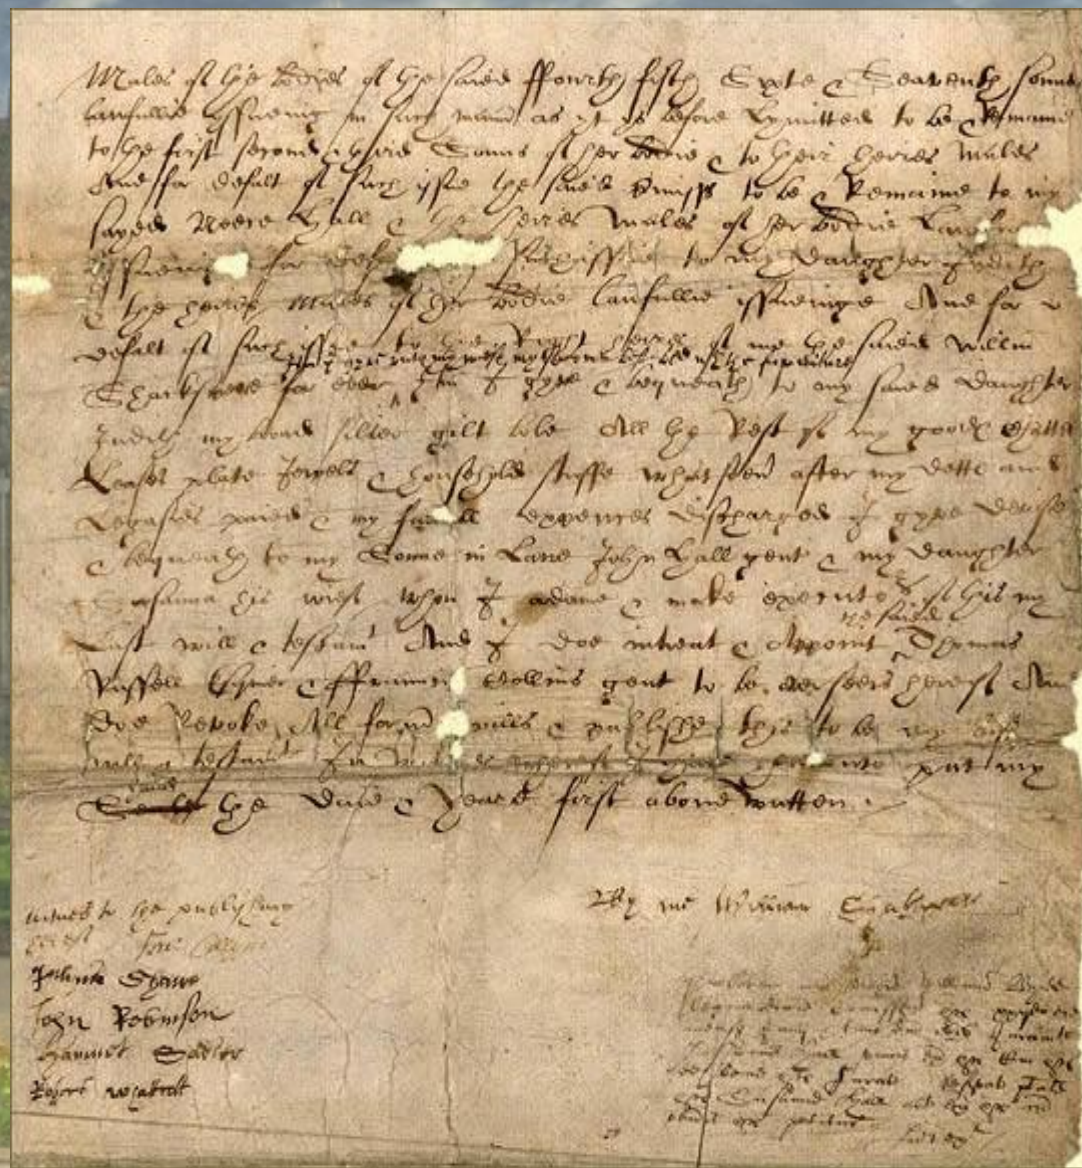 Males of the bodies of the saied ffourth fifth Sixte & Seaventh sonnes
lawfullie yssueing in such mannr as yt ys before Lymitted to be & Remaine
to the first second & third Sonns of her bodie & to their heires Males
And for defalt of such issue the saied premisss to be & Remaine to my
sayed Neece Hall & the heires males of her bodie Lawfu
yssueing for def such issue to my daughter Judith
& the heires Males of her bodie lawfullie issueinge And for
defalt of such issue to the Right heires of me the saied Willm
Itm I gyve unto my wief my second best bed wth the furniture
Shackspeare for ever Itm I gyve & bequeath to my saied daughter
Judith my broad silver gilt bole All the Rest of my goods Chattels
Leases plate Jewels & household stuffe whatsoever after my detts and
Legasies paied & my funerall expences discharged I gyve devise
& bequeath to my Sonne in Lawe John Hall gent & my daughter
Susanna his wief whom I ordaine & make executors of this my
the saied
Last will & testamt And I doe intreat & Appoint Thomas
Russell Esquier & ffrauncis Collins gent to be overseers hereof And
doe Revoke All formr wills & publishe this to be my last
will & testamt In witnes whereof I have hereunto put my
hand
Seale the Daie & Yeare first above written.
witnes to the publishing
hereof Fra: Collyns
Julyus Shawe
John Robinson
Hamnet Sadler
Robert Whattcott
By me William Shakspeare